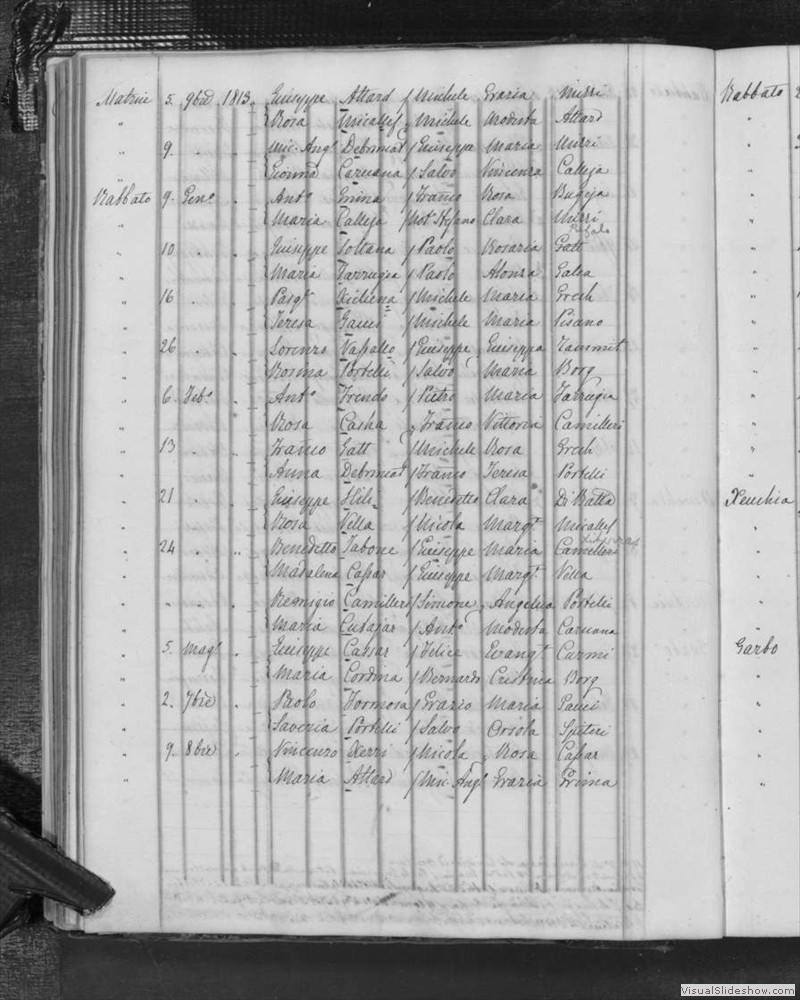 Matrice 5. 9bre 1813. Giuseppe Attard / Michele Grazia Mizzi Rabbato
" Rosa Micallef / Michele Modesta Attard "
" 9. . . Mic: Ango Debrincat / Giuseppe Maria Mizzi "
" Gionna Caruana / Salvo Vincenza Calleja "
Rabbato 9. Geno . Anto Grima / Franco Rosa Bugeja "
" Maria Calleja / Not. Stefano Clara Mizzi "
" 10 . . Giuseppe Soltana / Paolo Rosaria Gatt "
" Maria Farrugia / Paolo Galea "
" 16 . . Pasqe / Michele Maria Grech "
" Teresa Gauci / Michele Maria Pisano "
" 26 . . Lorenzo Vassallo / Giuseppe Giuseppa Zammit "
" Rosina Portelli / Salvo Maria Borg "
" 6. Febo . Anto Trendo / Pietro Maria Farrugia "
" Rosa Casha / Franco Vittoria Camilleri "
" 13 . . Franco Gatt / Michele Rosa Grech "
" Anna Debrincat / Franco Teresa Portelli "
" 21 . . Giuseppe Hili / Benedetto Clara Di Batta Xeuchia
" Rosa Vella / Nicola Margta Micallef "
" 24 . " Benedetto Tabone / Giuseppe Maria Camilleri "
" Madalena Cassar / Giuseppe Margta Vella "
" " . . Remigio Camilleri / Simone Angelica Portelli "
" Maria Cutajar / Anto Modesta Caruana "
" 5. Mago . Giuseppe Cassar / Felice Evangta Curmi Garbo
" Maria Cordina / Bernardo Cristina Borg "
" 2. 7bre . Paolo Formosa / Grazio Maria Gauci "
" Saveria Portelli / Salvo Orsola Spiteri "
" 9. 8bre . Vincenzo Xerri / Nicola Rosa Cassar "
" Maria Attard / Mic. Ango Grazia Grima "
VisualSlideshow.com